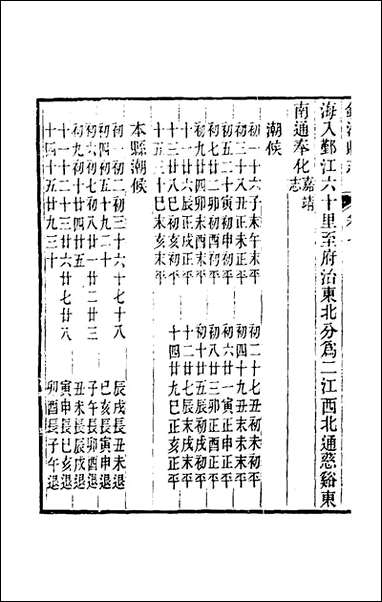 海入鄞江六十里至府治東北分爲二江西北通慈谿東
南通奉化嘉靖志
潮候
初一十六子末午末平　初二十七丑初未初平
初三十八丑正未正平　初四十九丑末未末平
初五二十寅初申初平　初六廿一寅正申正平
初七廿二卯初酉初平　初八廿三卯正酉正平
初九廿四卯末酉末平　初十廿五辰初戌初平
十一廿六辰正戌正平　十二廿七辰末戌末平
十三廿八巳初亥初平　十四廿九巳正亥正平
十五三十巳末亥末平
本縣潮候
初一初二初三十六十七十八　辰戌長丑未退
初四初五十九二十　巳亥長寅申退
初六初七初八廿一廿二廿三　子午長卯酉退
初九初十廿四廿五　丑未長辰戌退
十一十二十三廿六廿七廿八　寅申長巳亥退
十四十五廿九三十　卯酉長子午退